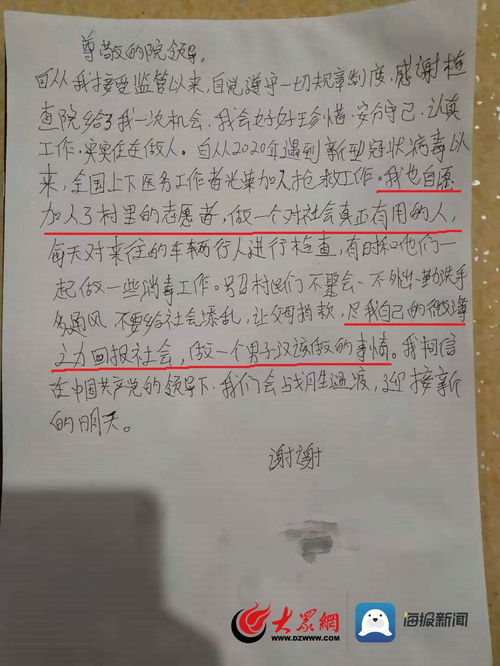 尊敬的院领导.
自从我接受监管以来,自觉遵守一切规章制度.感谢检
查院给了我一次机会.我会好好珍惜.安分守己.认真
工作.实实在在做人。自从2020年遇到新型冠状病毒以
来,全国上下医务工作者光荣加入抢救工作.我也自愿
加入了村里的志愿者,做一个对社会真正有用的人,
每天对来往的车辆行人进行检查,有时和他们一
起做一些消毒工作。号召村民们不聚会.不外出.勤洗手
多通风.不要给社会添乱,让父母捐款,尽我自己的微薄
之力回报社会,做一个男子汉该做的事情。我相信
在中国共产党的领导下.我们会战胜过渡,迎接新
的明天。
谢谢
大众网
WWW.DZWWW.COM
海报新闻